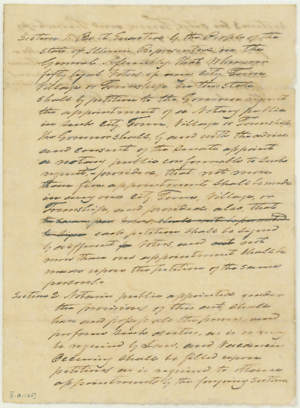 Section 1. Be it Enacted by the People of the
State of Illinois Represented in the
General Assembly That Whenever
fifty legal Voters of any City Town
Village or Township in this State
shall by petition to the Governor request
the appointment of a Notary public
in such City Town, Village or Township
the Governor shall, by and with the advice
and consent of the Senate appoint
a notary public conformable to such
request, provided, that not more
than five appointments shall be made
in any one City Town, Village, or
Township, and provided also that
each petition shall be signed
by different Voters, and not
more than one appointment shall be
made upon the petition of the same
persons.
Section 2 Notaries public appointed under
the provisions of this act, shall
have and possess the powers, and
perform such duties, as is or may
be required by Law, and Vacancies
Occurring shall be filled upon
petitions as is required to their
appointments by the foregoing section